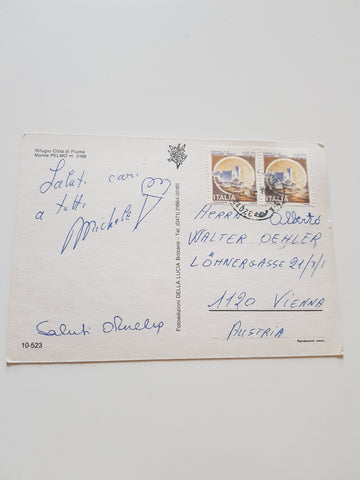 Rifugio Città di Fiume
Monte PELMO m. 3168
Saluti cari
a tutti
Michele
Saluti
10-523
Fotoedizioni DELLA LUCIA Bolzano - Tel. (0471)
ITALIA
ITALIA
HERRN Alberto
WALTER OEHLER
LÖHNERGASSE 21/7/1
1120 VIENNA
AUSTRIA
Riproduzione vietata